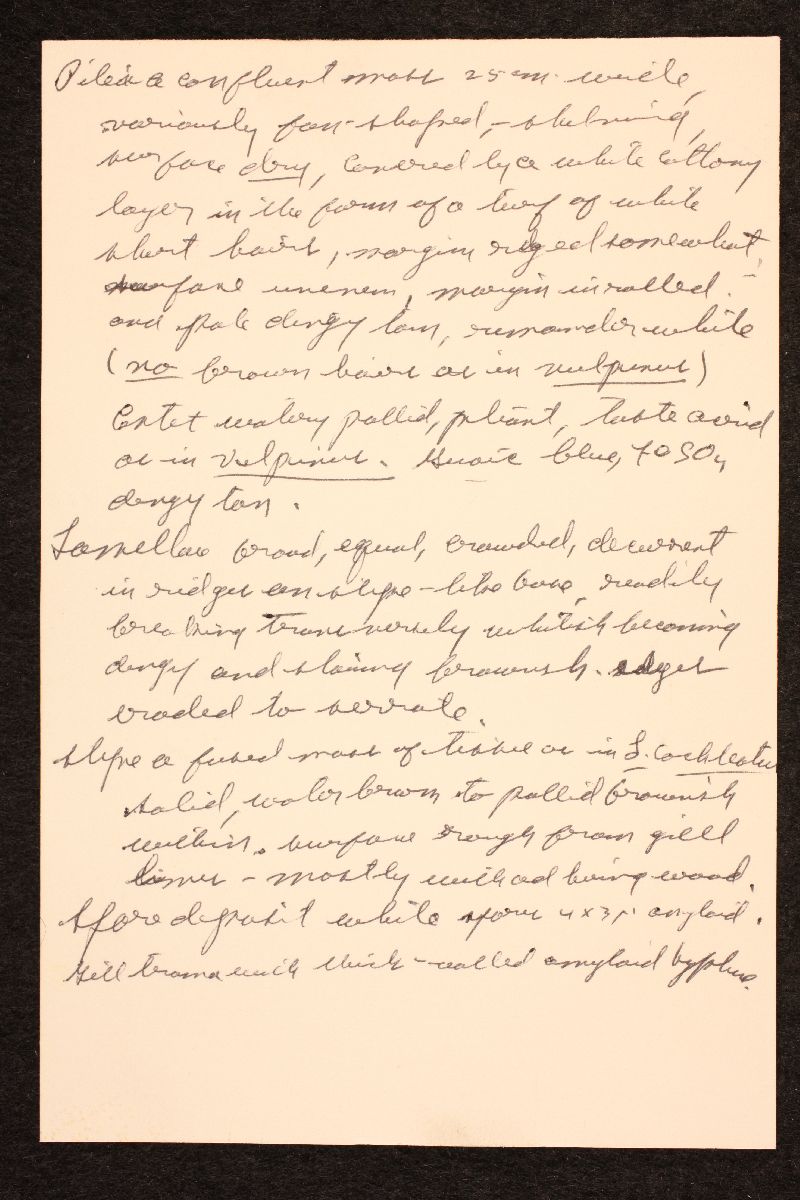 Pilei a confluent mass 25 cm. wide,
variously fan-shaped, - shelving,
surface dry, covered by a white cottony
layer in the form of a turf of white
short hairs, margin ridged somewhat,
surface uneven, margin inrolled.
and pale dingy tan, remainder white
(no brown hairs as in vulpinus)
Context watery pallid, pliant, taste acrid
as in vulpinus. Guaic blue, FeSO4
dingy tan.
Lamellae broad, equal, crowded, decurrent
in ridges on stipe-like base, readily
breaking transversely whitish becoming
dingy and staining brownish. edges
eroded to serrate.
stipe a fused mass of tissue as in L. cochleatus
solid, water brown to pallid brownish
within. surface rough from gill
lines - mostly
Spore deposit white spores 4 x 3 µ amyloid.
Gill trama with thick-walled amyloid hyphae.